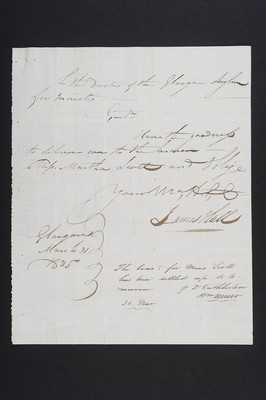 To the Directors of the Glasgow Asylum
for Lunatics
Gentn
Have the goodness
to deliver over to the bearer
Miss Martha Scott and oblige
Your Mo
James Hall
Glasgow
March 31
1825
The board for Miss Scott
has been settled up to
31 Mar